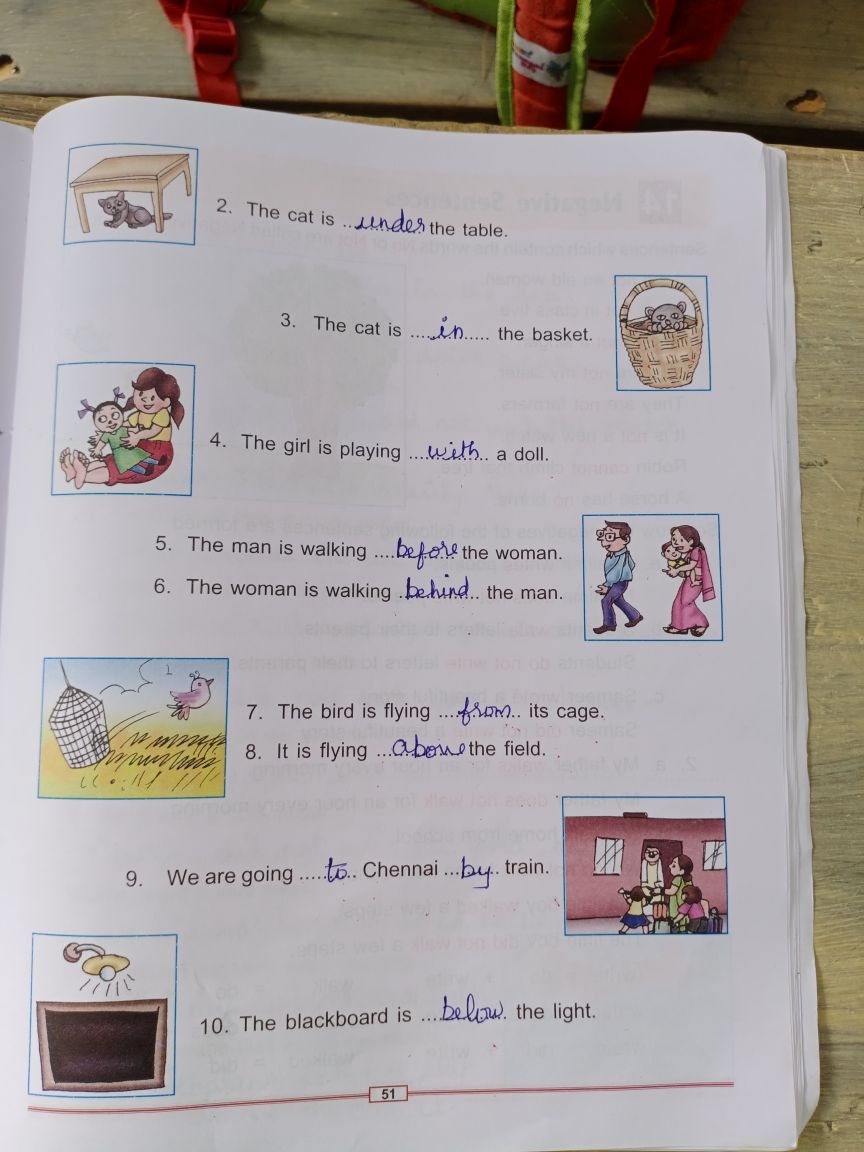 2. The cat is ...under the table.
3. The cat is ....in..... the basket.
4. The girl is playing ...with.. a doll.
5. The man is walking ....before the woman.
6. The woman is walking ..behind.. the man.
7. The bird is flying ....from.. its cage.
8. It is flying ...above the field.
9. We are going .....to.. Chennai ...by.. train.
10. The blackboard is ....below. the light.
51